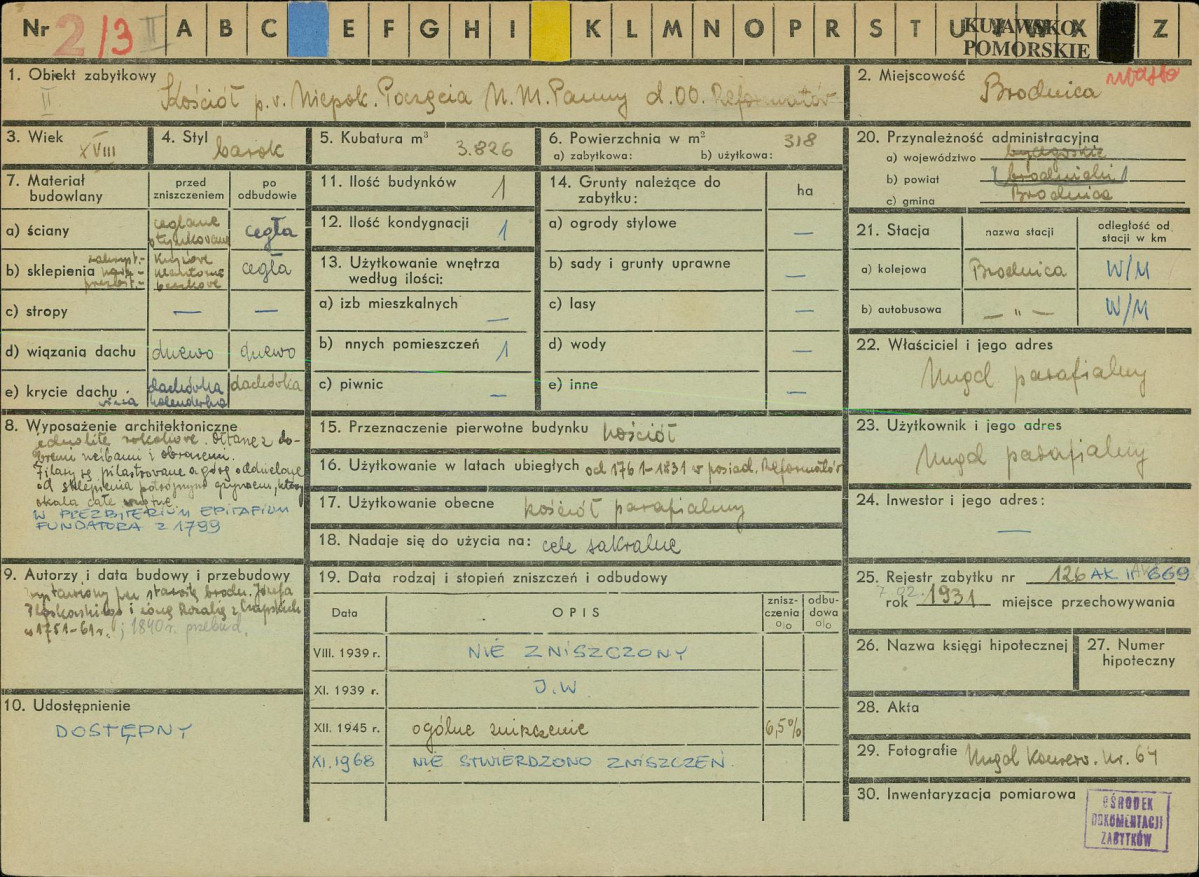 Nr 2/3 II A B C E F G H I K L M N O P R S T U W X Z
KUJAWSKO-
POMORSKIE
1. Obiekt zabytkowy
II
Kościół p.w. Niepok. Poczęcia N.M. Panny d. OO. Reformatów
2. Miejscowość Brodnica miasto
3. Wiek XVIII
4. Styl barok
5. Kubatura m³ 3.826
6. Powierzchnia w m² 318
a) zabytkowa: b) użytkowa:
20. Przynależność administracyjna
a) województwo bydgoskie
b) powiat brodnicki
c) gmina Brodnica
7. Materiał budowlany
przed zniszczeniem
po odbudowie
a) ściany ceglane otynkowane cegła
b) sklepienia zakryst.- nawa - prezbit.- krzyżowe klasztorne beczkowe cegła
c) stropy — —
d) wiązania dachu drzewo drzewo
e) krycie dachu dachówka holenderka dachówka
wieża
11. Ilość budynków 1
12. Ilość kondygnacji 1
13. Użytkowanie wnętrza
według ilości:
a) izb mieszkalnych —
b) nnych pomieszczeń 1
c) piwnic —
14. Grunty należące do
zabytku:
ha
a) ogrody stylowe —
b) sady i grunty uprawne —
c) lasy —
d) wody —
e) inne —
21. Stacja nazwa stacji odległość od stacji w km
a) kolejowa Brodnica W/M
b) autobusowa — " — W/M
22. Właściciel i jego adres
Urząd parafialny
8. Wyposażenie architektoniczne
jednolite rokokowe. Ołtarze z do-
bremi rzeźbami i obrazami.
Filary są pilastrowane a górę oddzielone
od sklepienia potrójnym gzymsem, który
okala całe wnętrze
W PREZBITERIUM EPITAFIUM
FUNDATORA Z 1799
15. Przeznaczenie pierwotne budynku kościół
16. Użytkowanie w latach ubiegłych od 1761-1831 w posiad. Reformatów
17. Użytkowanie obecne kościół parafialny
18. Nadaje się do użycia na: cele sakralne
23. Użytkownik i jego adres
Urząd parafialny
24. Inwestor i jego adres:
—
9. Autorzy i data budowy i przebudowy
wystawiony przez starostę brodn. Józefa
i żonę Rozalię z Czapskich
w 1751-61r. ; 1840 r. przebud.
19. Data rodzaj i stopień zniszczeń i odbudowy
Data OPIS zniszczenia o|o odbudowa o|o
VIII. 1939 r. NIE ZNISZCZONY
XI. 1939 r. J.W
XII. 1945 r. ogólne zniszczenie 6,5%
XI.1968 NIE STWIERDZONO ZNISZCZEŃ.
25. Rejestr zabytku nr 126 AK II 669
rok 1931 miejsce przechowywania
26. Nazwa księgi hipotecznej
27. Numer
hipoteczny
10. Udostępnienie
DOSTĘPNY
28. Akta
29. Fotografie Urząd Konserw. Nr. 64
30. Inwentaryzacja pomiarowa
OŚRODEK
DOKUMENTACJI
ZABYTKÓW